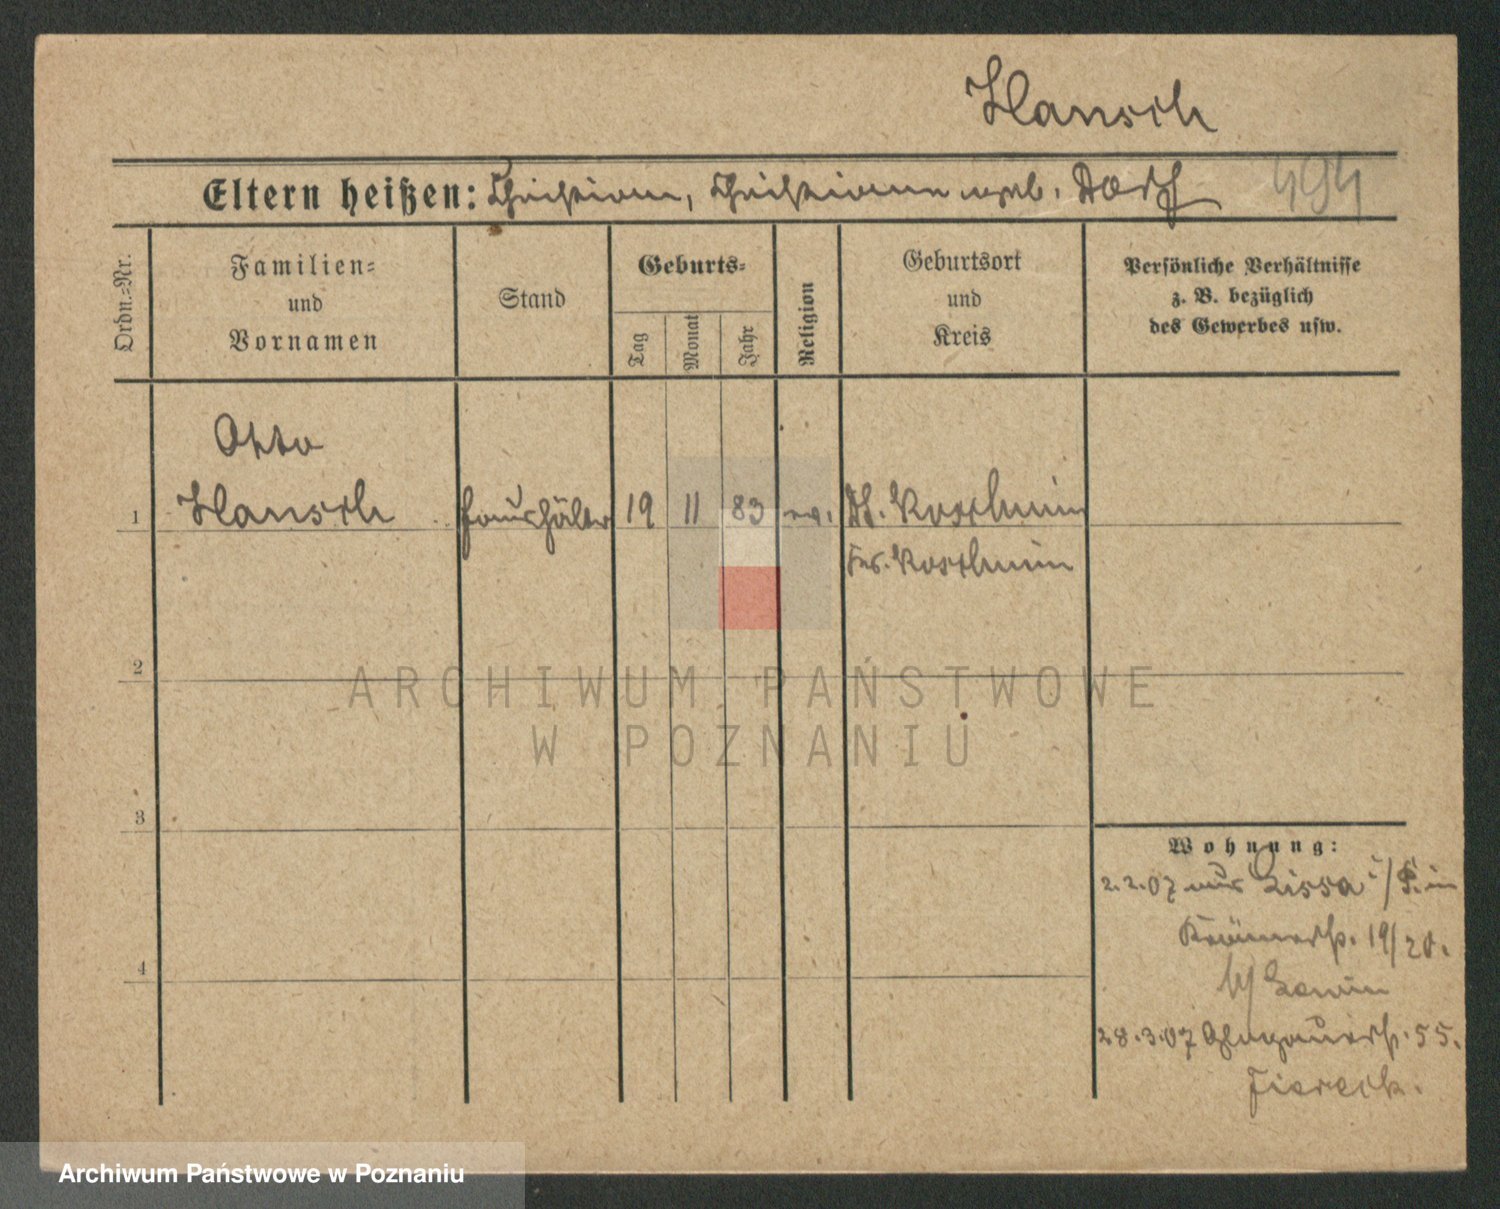 Hansch
Eltern heißen: Christian, Christiane geb. Dorf 494
Ordn.-Nr.
Familien-
und
Vornamen
Stand
Geburts-
Tag
Monat
Jahr
Religion
Geburtsort
und
Kreis
Persönliche Verhältnisse
z. B. bezüglich
des Gewerbes usw.
Otto
1 Hansch Haushälter 19 11 83 ev. Df. Koschmin
Krs. Koschmin
2
ARCHIWUM PAŃSTWOWE
W POZNANIU
3
Wohnung:
2.2.07 aus Lissa i/P. in
Krämerstr. 19/20.
b/ Lewin
4
28.3.07 Glogauerstr. 55.
Archiwum Państwowe w Poznaniu